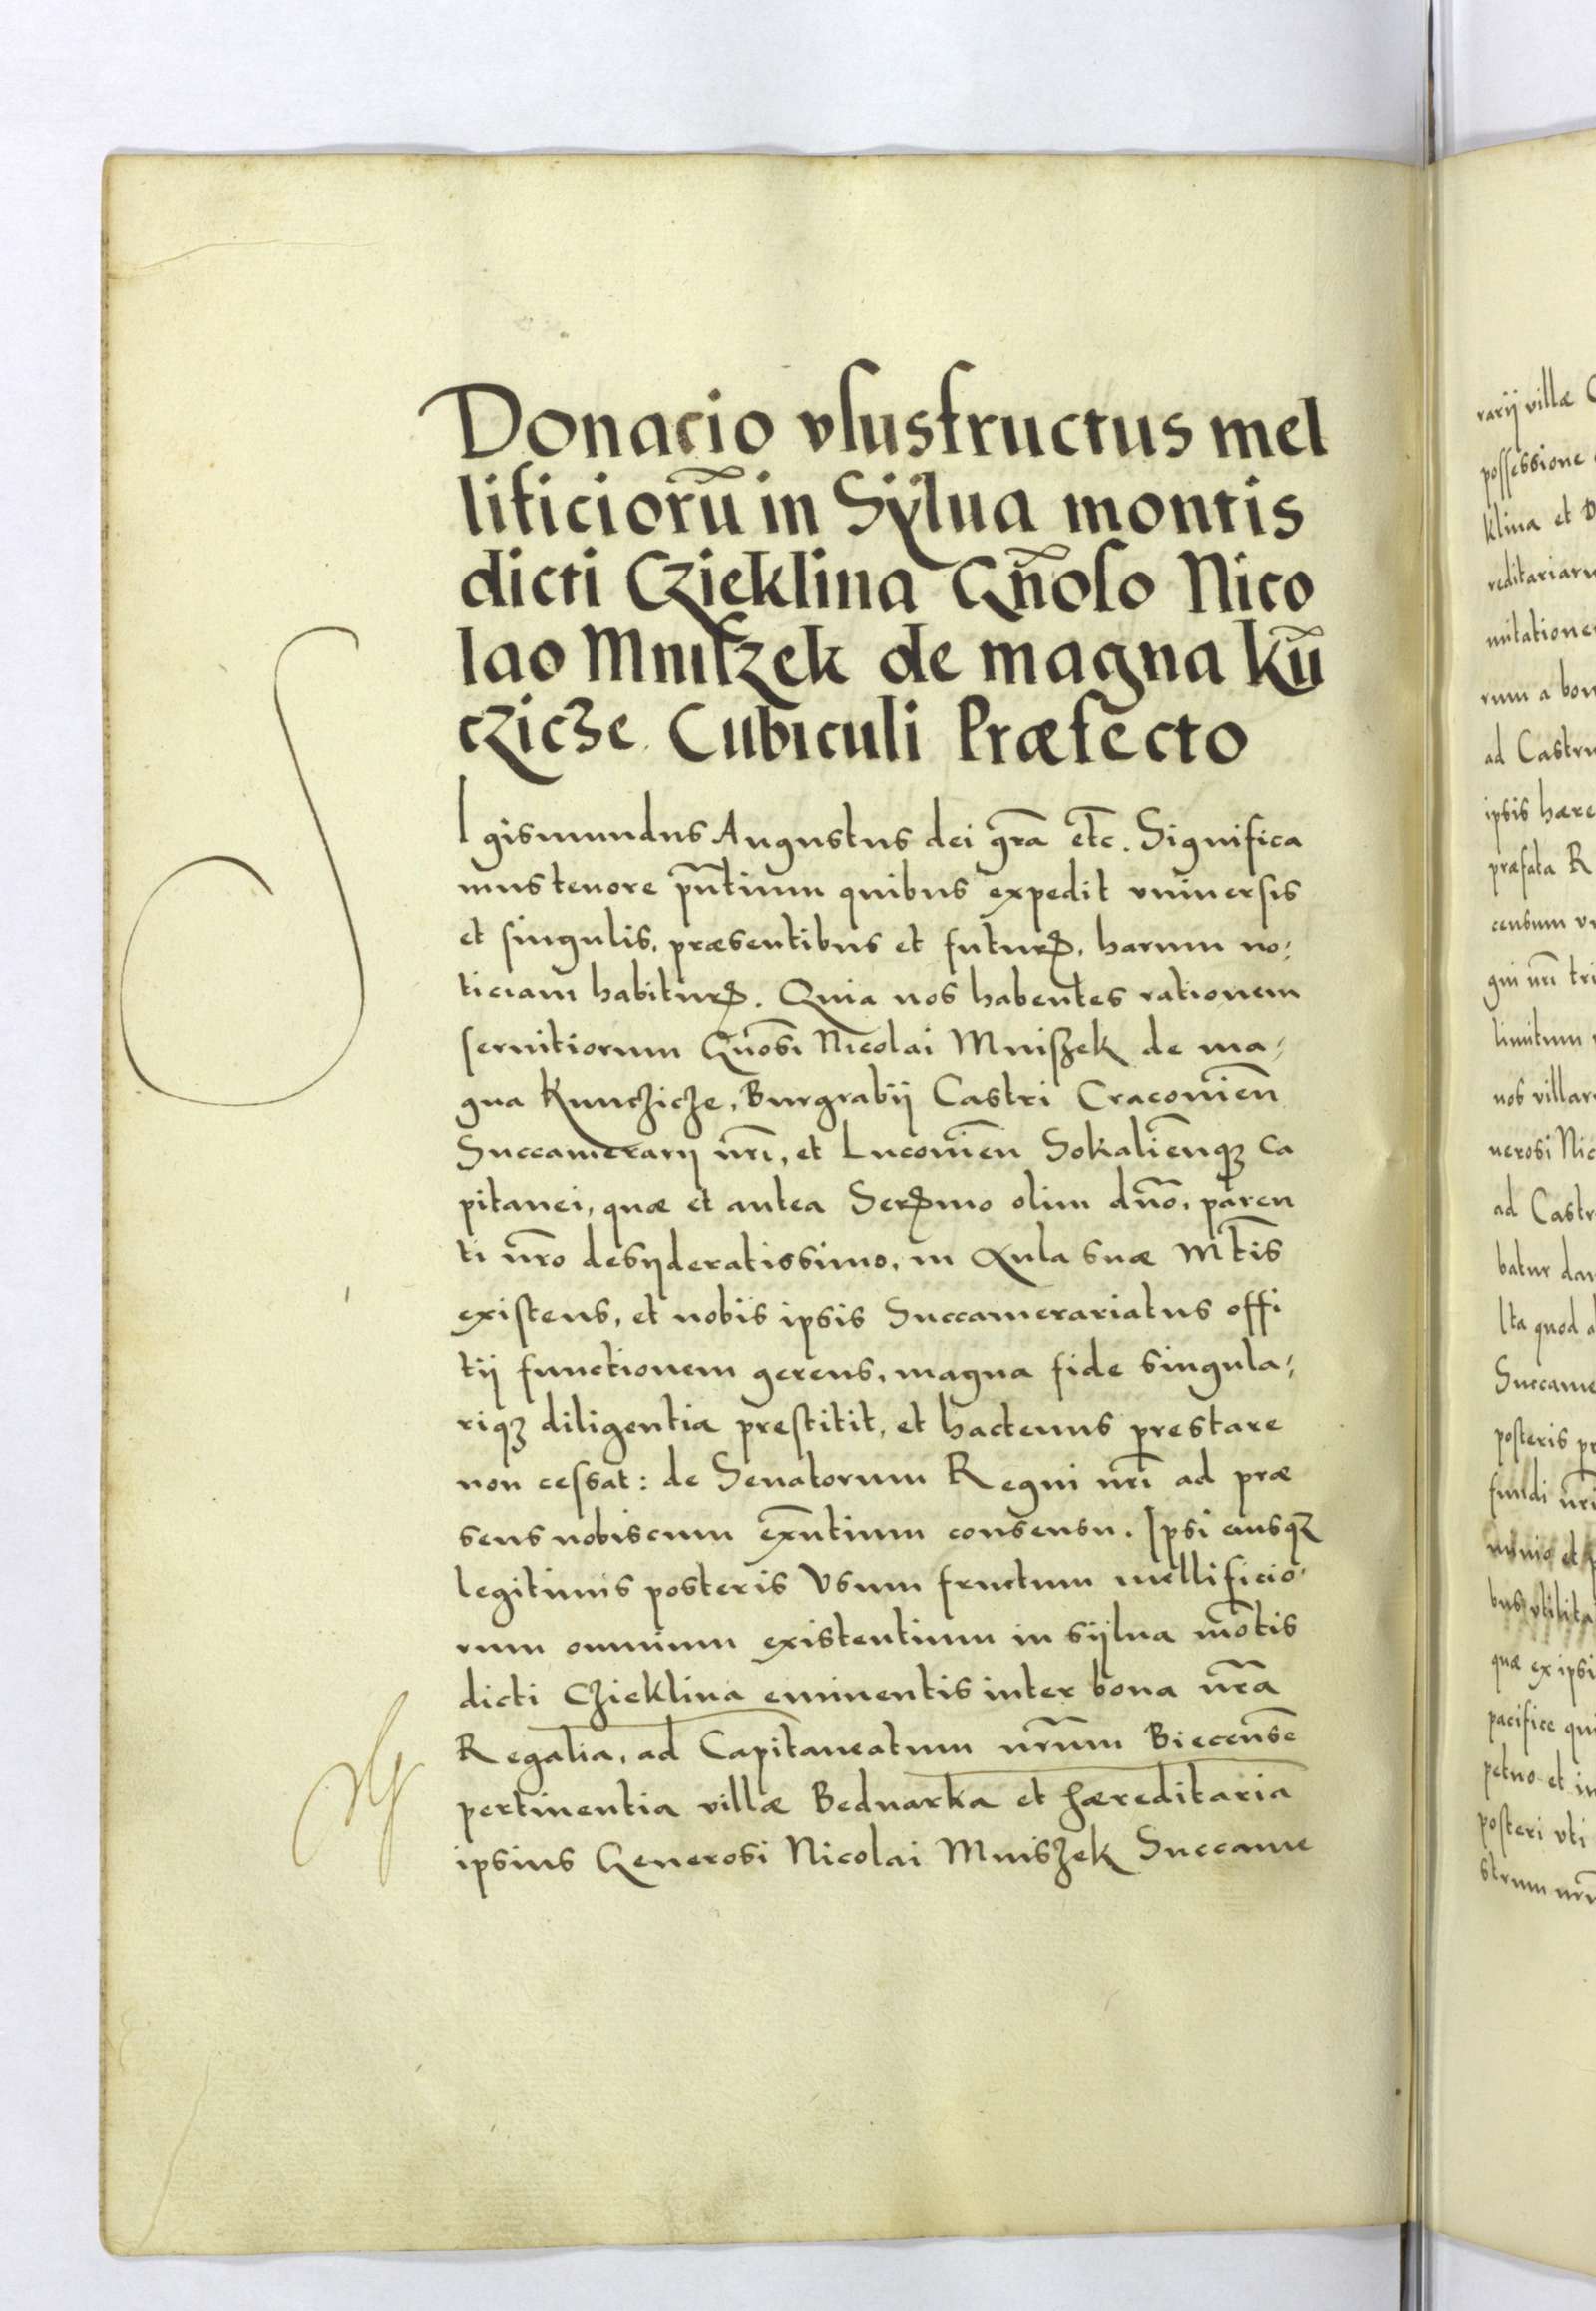 Donacio vsusfructus mel
lificiorũ in Sÿlua montis
dicti Czieklina Gñoso Nico
lao Mniszek de magna kũ
czicze Cubiculi Præfecto
SIgismundus Augustus dei grã etc̃. Significa
mus tenore pñtium quibus expedit vniuersis
et singulis, præsentibus et futurꝭ, harum no:
ticiam habiturꝭ. Quia nos habentes rationem
seruitiorum Gñosi Nicolai Mniszek de ma:
gna Kunczicze, Burgrabij Castri Cracouieñ
Succamerarij nrĩ, et Lucouieñ Sokalieñqꝫ Ca
pitanei, quæ et antea Serꝭmo olim dño, paren
ti nrõ desÿderatissimo, in Aula suæ Mt̃is
existens, et nobis ipsis Succamerariatus offi
tij functionem gerens, magna fide singula:
riqꝫ diligentia prestitit, et hactenus prestare
non cessat: de Senatorum Regni nrĩ ad præ
sens nobiscum exñtium consensu. Ipsi eiusqꝫ
legitimis posteris Vsum fructum mellificio:
rum omnium existentium in sÿlua mõtis
dicti Czieklina eminentis inter bona nrã
Regalia, ad Capitaneatum nrũm Biecensẽ
pertinentia villæ Bednarka et hæreditaria
ipsius Generosi Nicolai Mniszek Succame
rarij villæ
possessione
klina et
reditariaru
mitatione
rum a bon
ad Castru
ipsis hære
præfata R
censum
gni nrĩ tri
limitum
nos villar
nerosi Nic
ad Castr
batur dan
Ita quod
Succame
posteris
fundi nrĩ
quæ ex ipsi
pacifice qui
petuo et in
posteri vti
strum